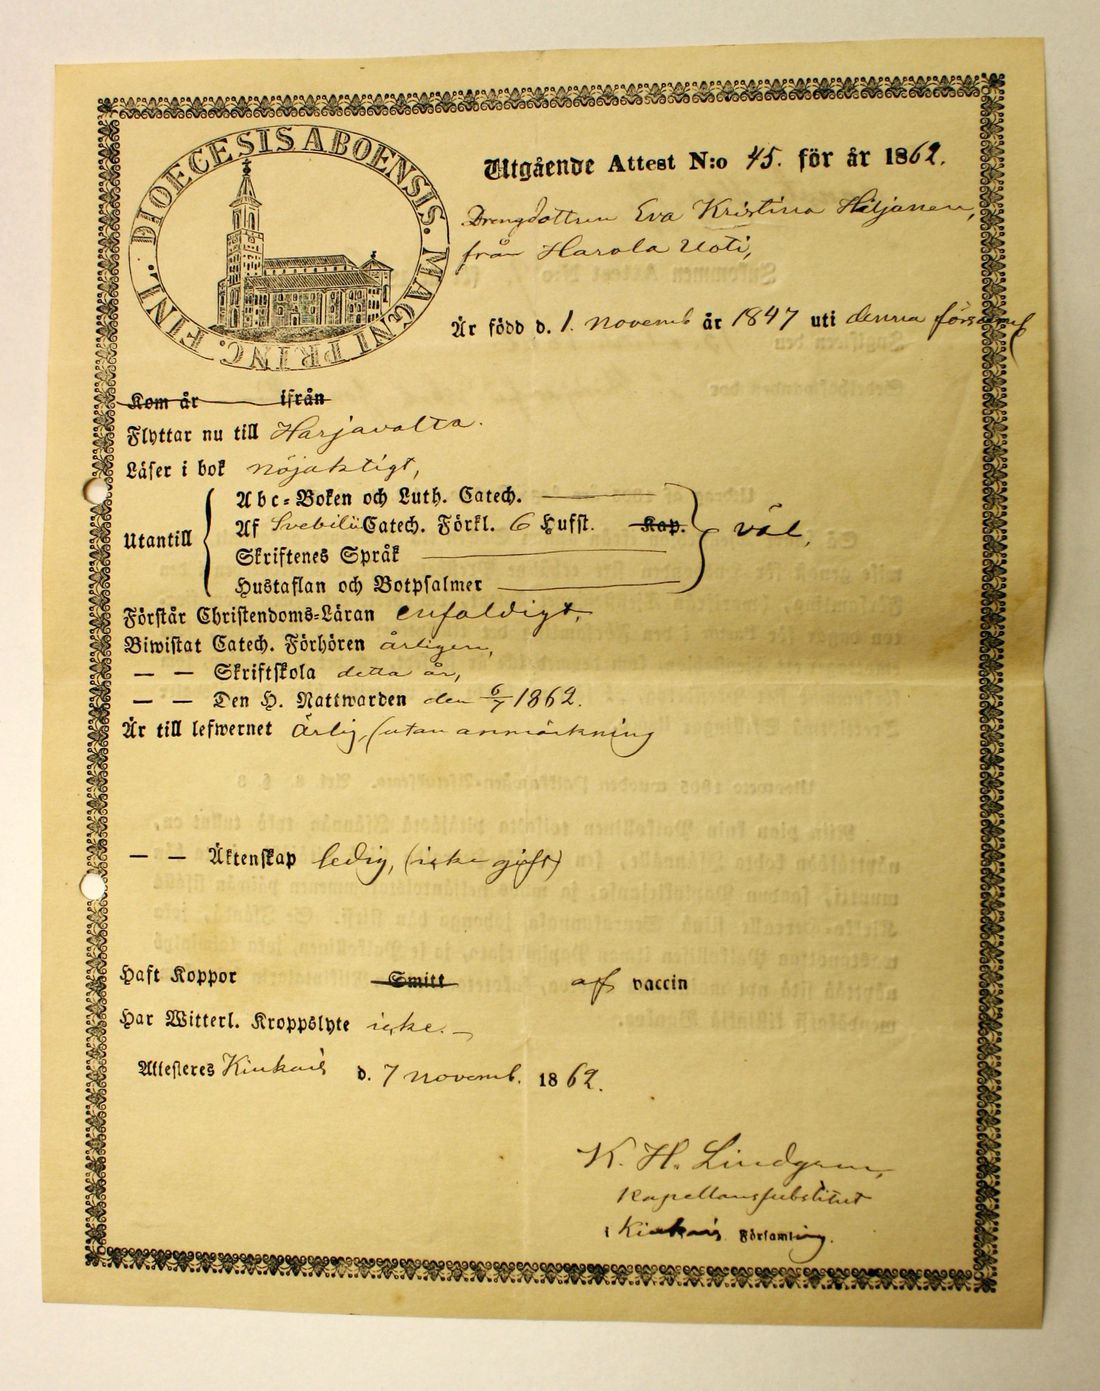 DIOECESIS ABOENSIS. MAGNI PRINC. FINL.
Utgående Attest N:o 45. för år 1862.
Drengdottren Eva Kristina Hiljanen,
från Harola Uoti,
Är född d. 1. novemb år 1847 uti denna församl
Kom år ifrån
Flyttar nu till Harjavalta.
Läser i bok nöjaktigt,
Utantill
Abc-Boken och Luth. Catech.
Af Svebilii Catech. Förkl. 6 Hufst. Kap. väl,
Skriftenes Språk
Hustaflan och Botpsalmer
Förstår Christendoms-Läran enfaldigt,
Biwistat Catech. Förhören årligen,
— — Skriftskola detta år,
— — Den H. Nattwarden den 6/7 1862.
Är till lefwernet ärlig, (utan anmärkning
— — Äktenskap ledig, (icke gift)
Haft Koppor Smitt af vaccin
Har Witterl. Kroppslyte icke. —
Attesteres Kiukais d. 7 novemb. 1862.
K. H. Lindgren,
Kapellanssubstitut
i Kiukais Församling.